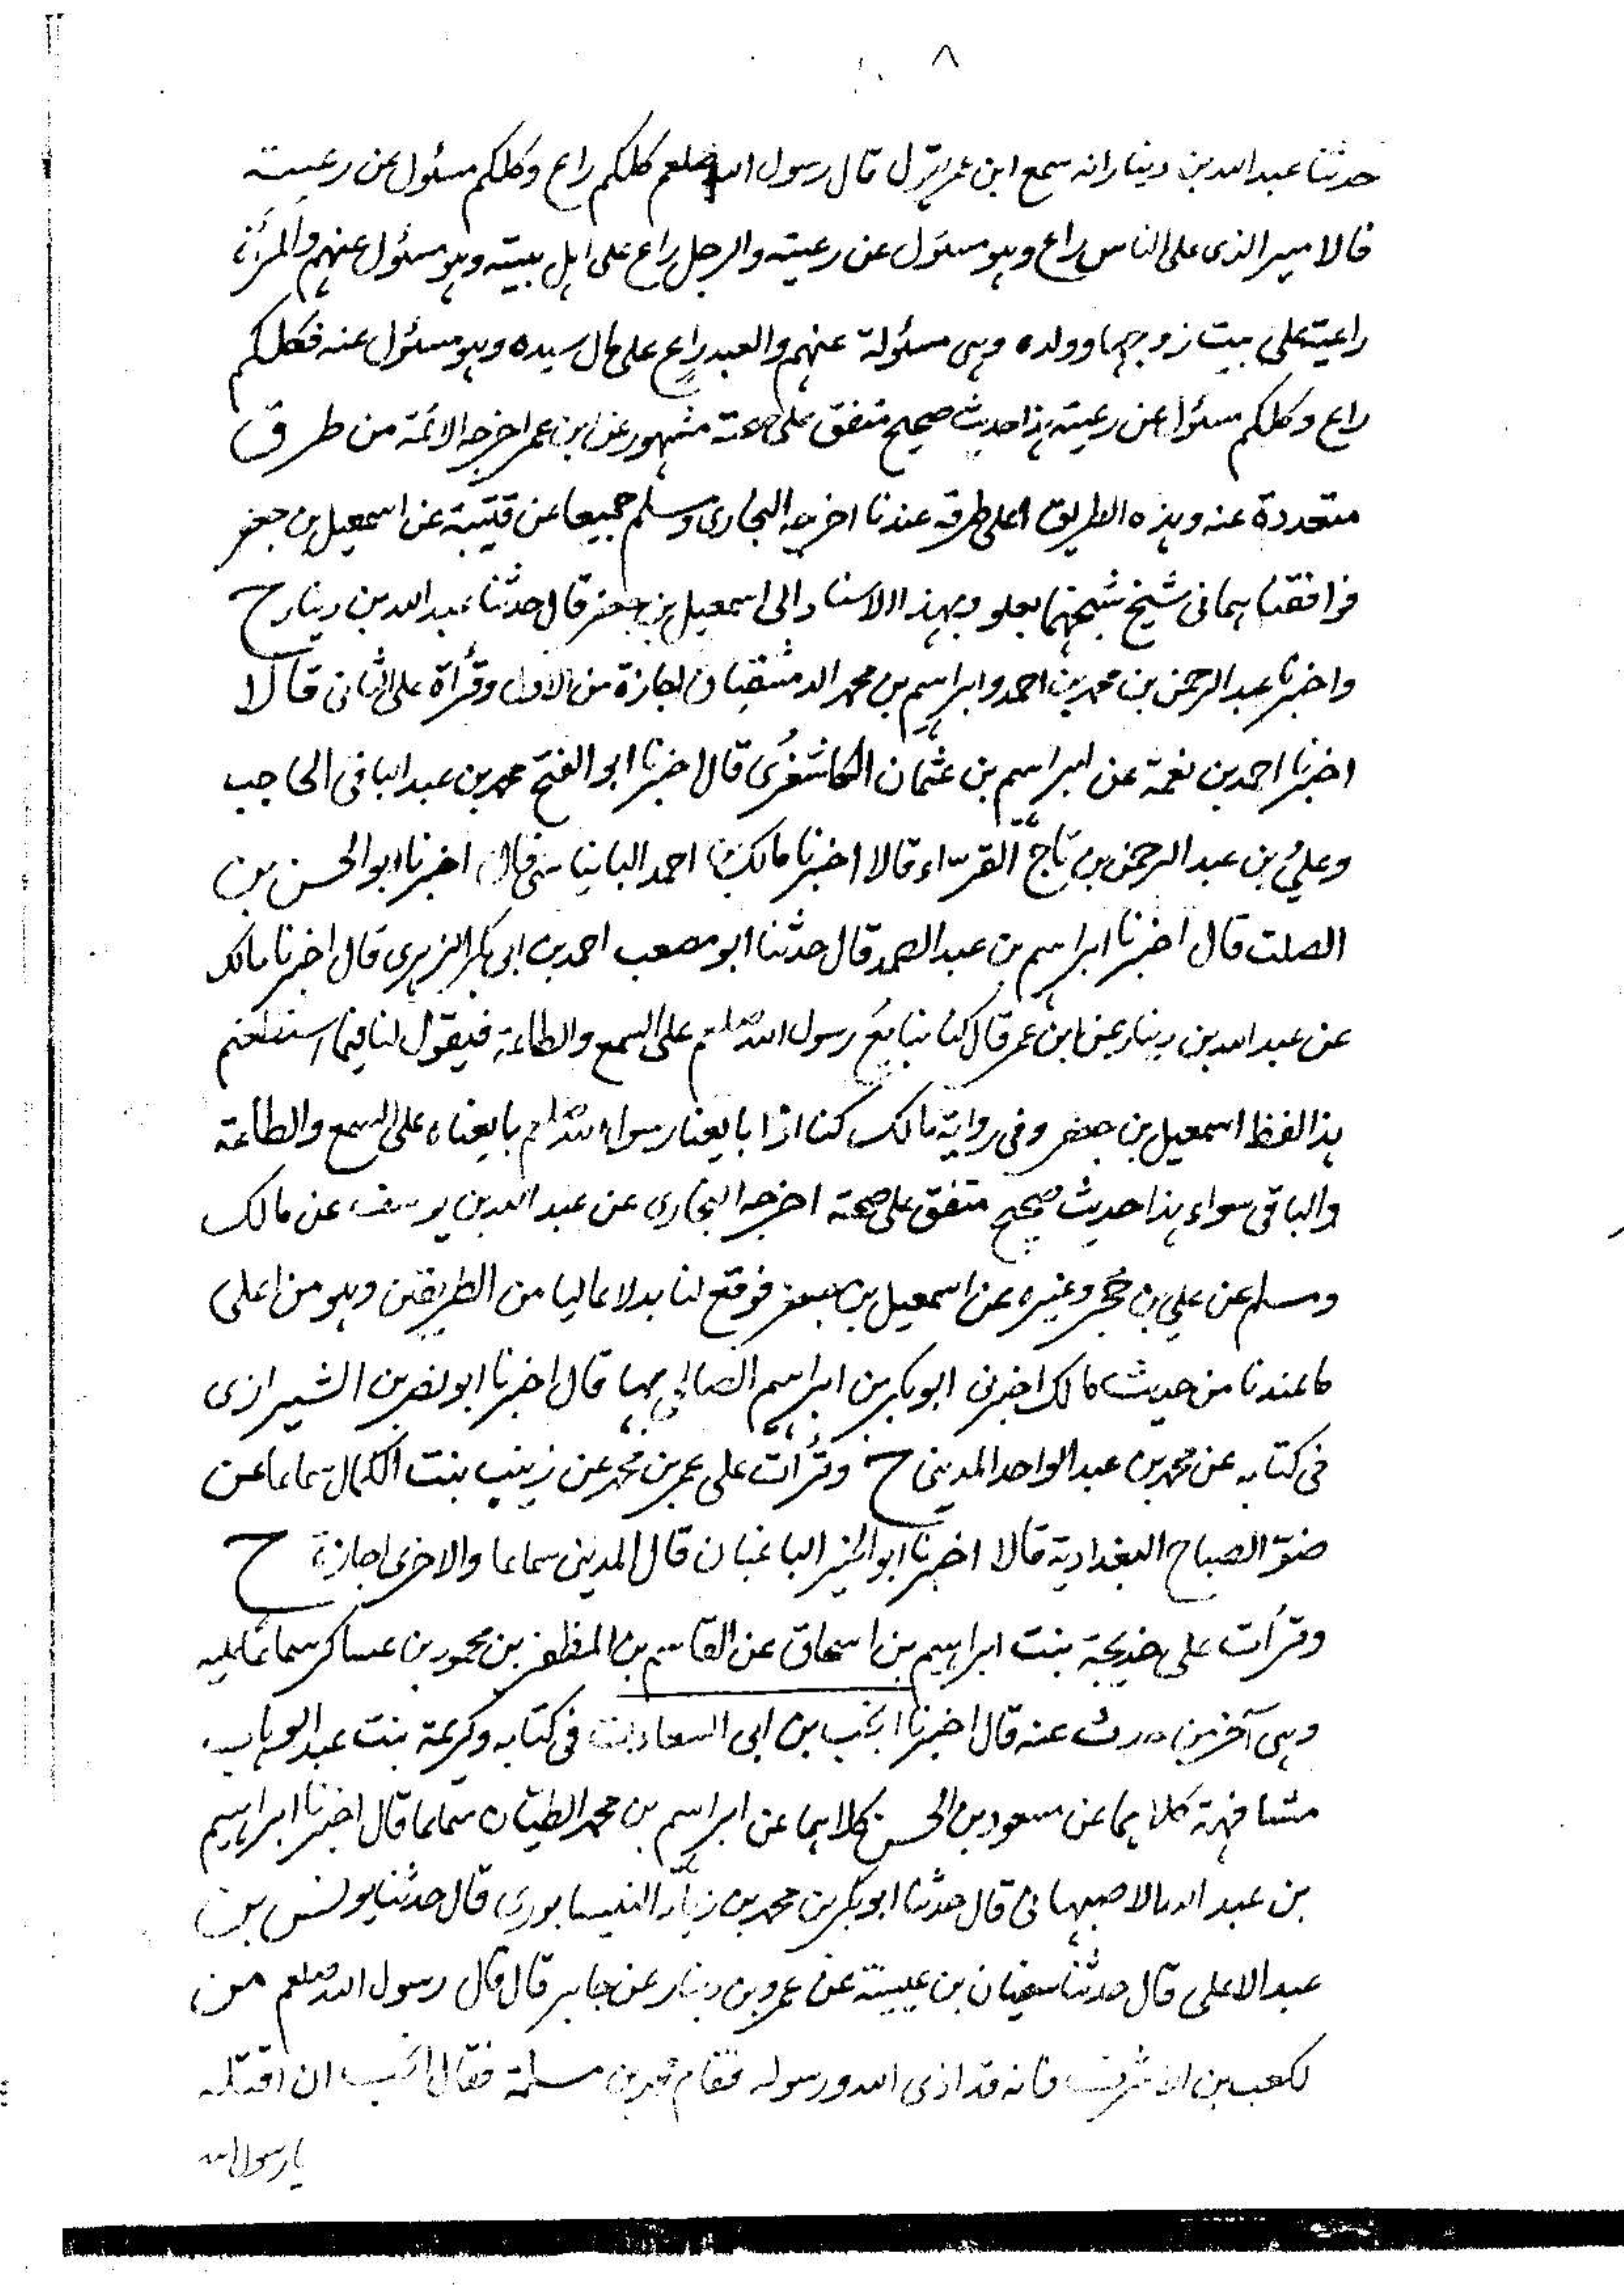 ٨
حدثنا عبد الله بن دينار انه سمع ابن عمر يقول قال رسول الله صلعم كلكم راع وكلكم مسئول عن رعيته
فالامير الذى على الناس راع وهو مسئول عن رعيته والرجل راع على اهل بيته وهو مسئول عنهم والمرأة
راعية على بيت زوجها وولده وهى مسئولة عنهم والعبد راع على مال سيده وهو مسئول عنه فكلكم
راع وكلكم مسئول عن رعيته هذا حديث صحيح متفق على صحته مشهور عن ابن عمر اخرجه الائمة من طرق
متعددة عنه وهذه الطريق اعلى طرقه عندنا اخرجه البخارى ومسلم جميعا عن قتيبة عن اسمعيل بن جعفر
فوافقناهما فى شيخ شيخهما بعلو وبهذا الاسناد الى اسمعيل بن جعفر قال حدثنا عبد الله بن دينار ح
واخبرنا عبد الرحمن بن محمد بن احمد وابراهيم بن محمد الدمشقيان اجازة من الاول وقرأة على الثانى قالا
اخبرنا احمد بن نعمة عن ابراهيم بن عثمان الكاشغرى قال اخبرنا ابو الفتح محمد بن عبد الباقى الحاجب
وعلى بن عبد الرحمن بن تاج القراء قالا اخبرنا مالك بن احمد البانياسى قال اخبرنا ابو الحسن بن
الصلت قال اخبرنا ابراهيم بن عبد الصمد قال حدثنا ابو مصعب احمد بن ابى بكر الزهرى قال اخبرنا مالك
عن عبد الله بن دينار عن ابن عمر قال كنا نبايع رسول الله صلعم على السمع والطاعة فيقول لنا فيما استطعتم
هذا لفظ اسمعيل بن جعفر وفى رواية مالك كنا اذا بايعنا رسول الله صلعم بايعناه على السمع والطاعة
والباقى سواء هذا حديث صحيح متفق على صحته اخرجه البخارى عن عبد الله بن يوسف عن مالك
ومسلم عن على بن حجر وغيره عن اسمعيل بن جعفر فوقع لنا بدلا عاليا من الطريقين وهو من اعلى
ما عندنا من حديث مالك اخبرنى ابو بكر بن ابراهيم الصالحى بها قال اخبرنا ابو نصر بن الشيرازى
فى كتابه عن محمد بن عبد الواحد المدينى ح وقرأت على عمر بن محمد عن زينب بنت الكمال سماعا عن
ضوء الصباح البغدادية قالا اخبرنا ابو الخير الباغبان قال المدينى سماعا والاخرى اجازة ح
وقرأت على خديجة بنت ابراهيم بن اسحاق عن القاسم بن المظفر بن محمود بن عساكر سماعا عليه
وهى آخر من حدث عنه قال اخبرنا انجب بن ابى السعادات فى كتابه وكريمة بنت عبد الوهاب
مشافهة كلاهما عن مسعود بن الحسن كلاهما عن ابراهيم بن محمد الطيان سماعا قال اخبرنا ابراهيم
بن عبد الله الاصبهانى قال حدثنا ابو بكر بن محمد بن زياد النيسابورى قال حدثنا يونس بن
عبد الاعلى قال حدثنا سفيان بن عيينة عن عمرو بن دينار عن جابر قال قال رسول الله صلعم من
لكعب بن الاشرف فانه قد اذى الله ورسوله فقام محمد بن مسلمة فقال اتحب ان اقتله
يا رسول الله